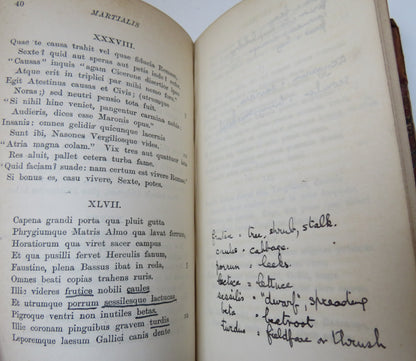 40
MARTIALIS
XXXVIII.
Quae te causa trahit vel quae fiducia Romam,
Sexte? quid aut speras aut petis inde? refer.
"Causas" inquis "agam Cicerone disertior ipso
Atque erit in triplici par mihi nemo foro."
Egit Atestinus causas et Civis; (utrumque
Noras;) sed neutri pensio tota fuit.
"Si nihil hinc veniet, pangentur carmina nobis:
Audieris, dices esse Maronis opus."
Insanis: omnes gelidis quicunque lacernis
Sunt ibi, Nasones Vergiliosque vides.
"Atria magna colam." Vix tres aut quattuor ista
Res aluit, pallet cetera turba fame.
"Quid faciam? suade: nam certum est vivere Romae."
Si bonus es, casu vivere, Sexte, potes.
XLVII.
Capena grandi porta qua pluit gutta
Phrygiumque Matris Almo qua lavat ferrum,
Horatiorum qua viret sacer campus
Et qua pusilli fervet Herculis fanum,
Faustine, plena Bassus ibat in reda, 5
Omnes beati copias trahens ruris.
Illic videres frutice nobili caules
Et utrumque porrum sessilesque lactucas,
Pigroque ventri non inutiles betas.
Illic coronam pinguibus gravem turdis
Leporemque laesum Gallici canis dente
frutice = tree, shrub, stalk.
caules = cabbage.
porrum = leeks.
lactuca = lettuce
sessilis = "dwarf", spreading
beta = beetroot
turdus = fieldfare or thrush